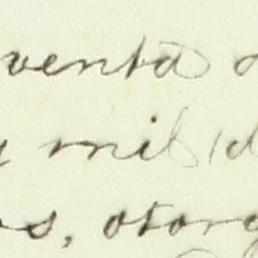 venta
y mil
os, otorg